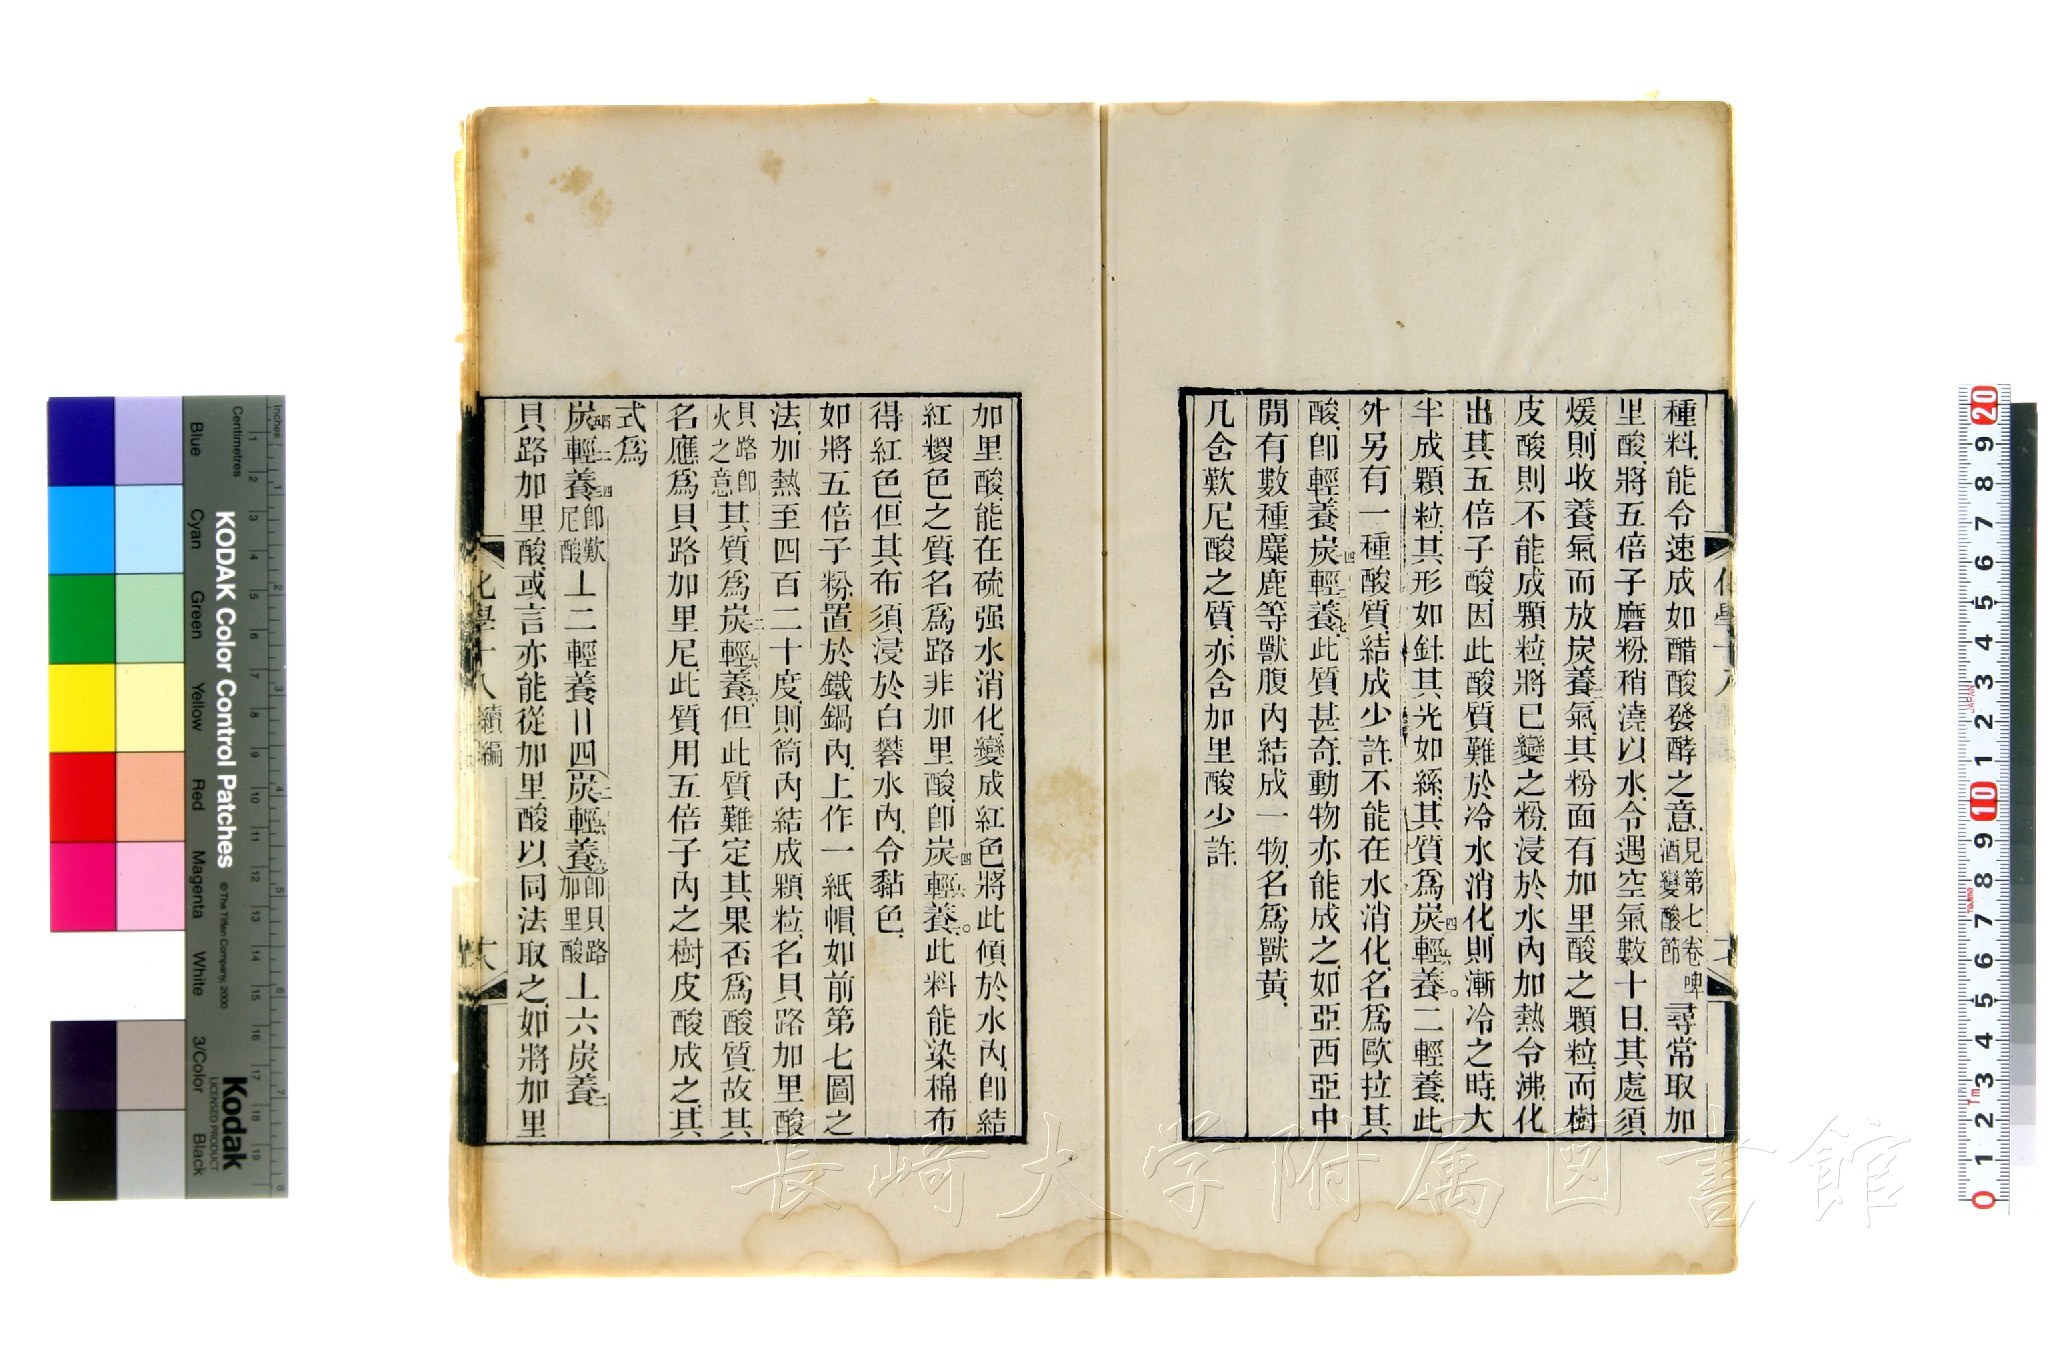 種料能令速成如醋酸發酵之意見第七卷啤酒變酸節尋常取加
里酸將五倍子磨粉稍澆以水令遇空氣數十日其處須
煖則收養氣而放炭養二氣其粉面有加里酸之顆粒而樹
皮酸則不能成顆粒將已變之粉浸於水內加熱令沸化
出其五倍子酸因此酸質難於冷水消化則漸冷之時大
半成顆粒其形如針其光如絲其質為炭輕養二輕養此
外另有一種酸質結成少許不能在水消化名為歐拉其
酸卽輕養炭輕養此質甚奇動物亦能成之如亞西亞中
間有數種麋鹿等獸腹內結成一物名為獸黃
凡含歎尼酸之質亦含加里酸少許
加里酸能在硫强水消化變成紅色將此傾於水內卽結
紅糉色之質名為路非加里酸卽炭輕養此料能染棉布
得紅色但其布須浸於白礬水內令黏色
如將五倍子粉置於鐵鍋內上作一紙帽如前第七圖之
法加熱至四百二十度則筒內結成顆粒名貝路加里酸
貝路卽火之意其質為炭輕養但此質難定其果否為酸質故其
名應為貝路加里尼此質用五倍子內之樹皮酸成之其
式為
炭輕養卽歎尼酸丄二輕養＝四(炭輕養)卽貝路加里酸丄六炭養二
貝路加里酸或言亦能從加里酸以同法取之如將加里
化學十八 續編
長崎大学附属図書館
KODAK Color Control Patches
© The Tiffen Company, 2000
Kodak
LICENSED PRODUCT
Inches
Centimetres
Blue
Cyan
Green
Yellow
Red
Magenta
White
3/Color
Black
1 2 3 4 5 6 7 8
1 2 3 4 5 6 7 8 9 10 11 12 13 14 15 16 17 18 19
0 1 2 3 4 5 6 7 8 9 10 1 2 3 4 5 6 7 8 9 20
JAPAN